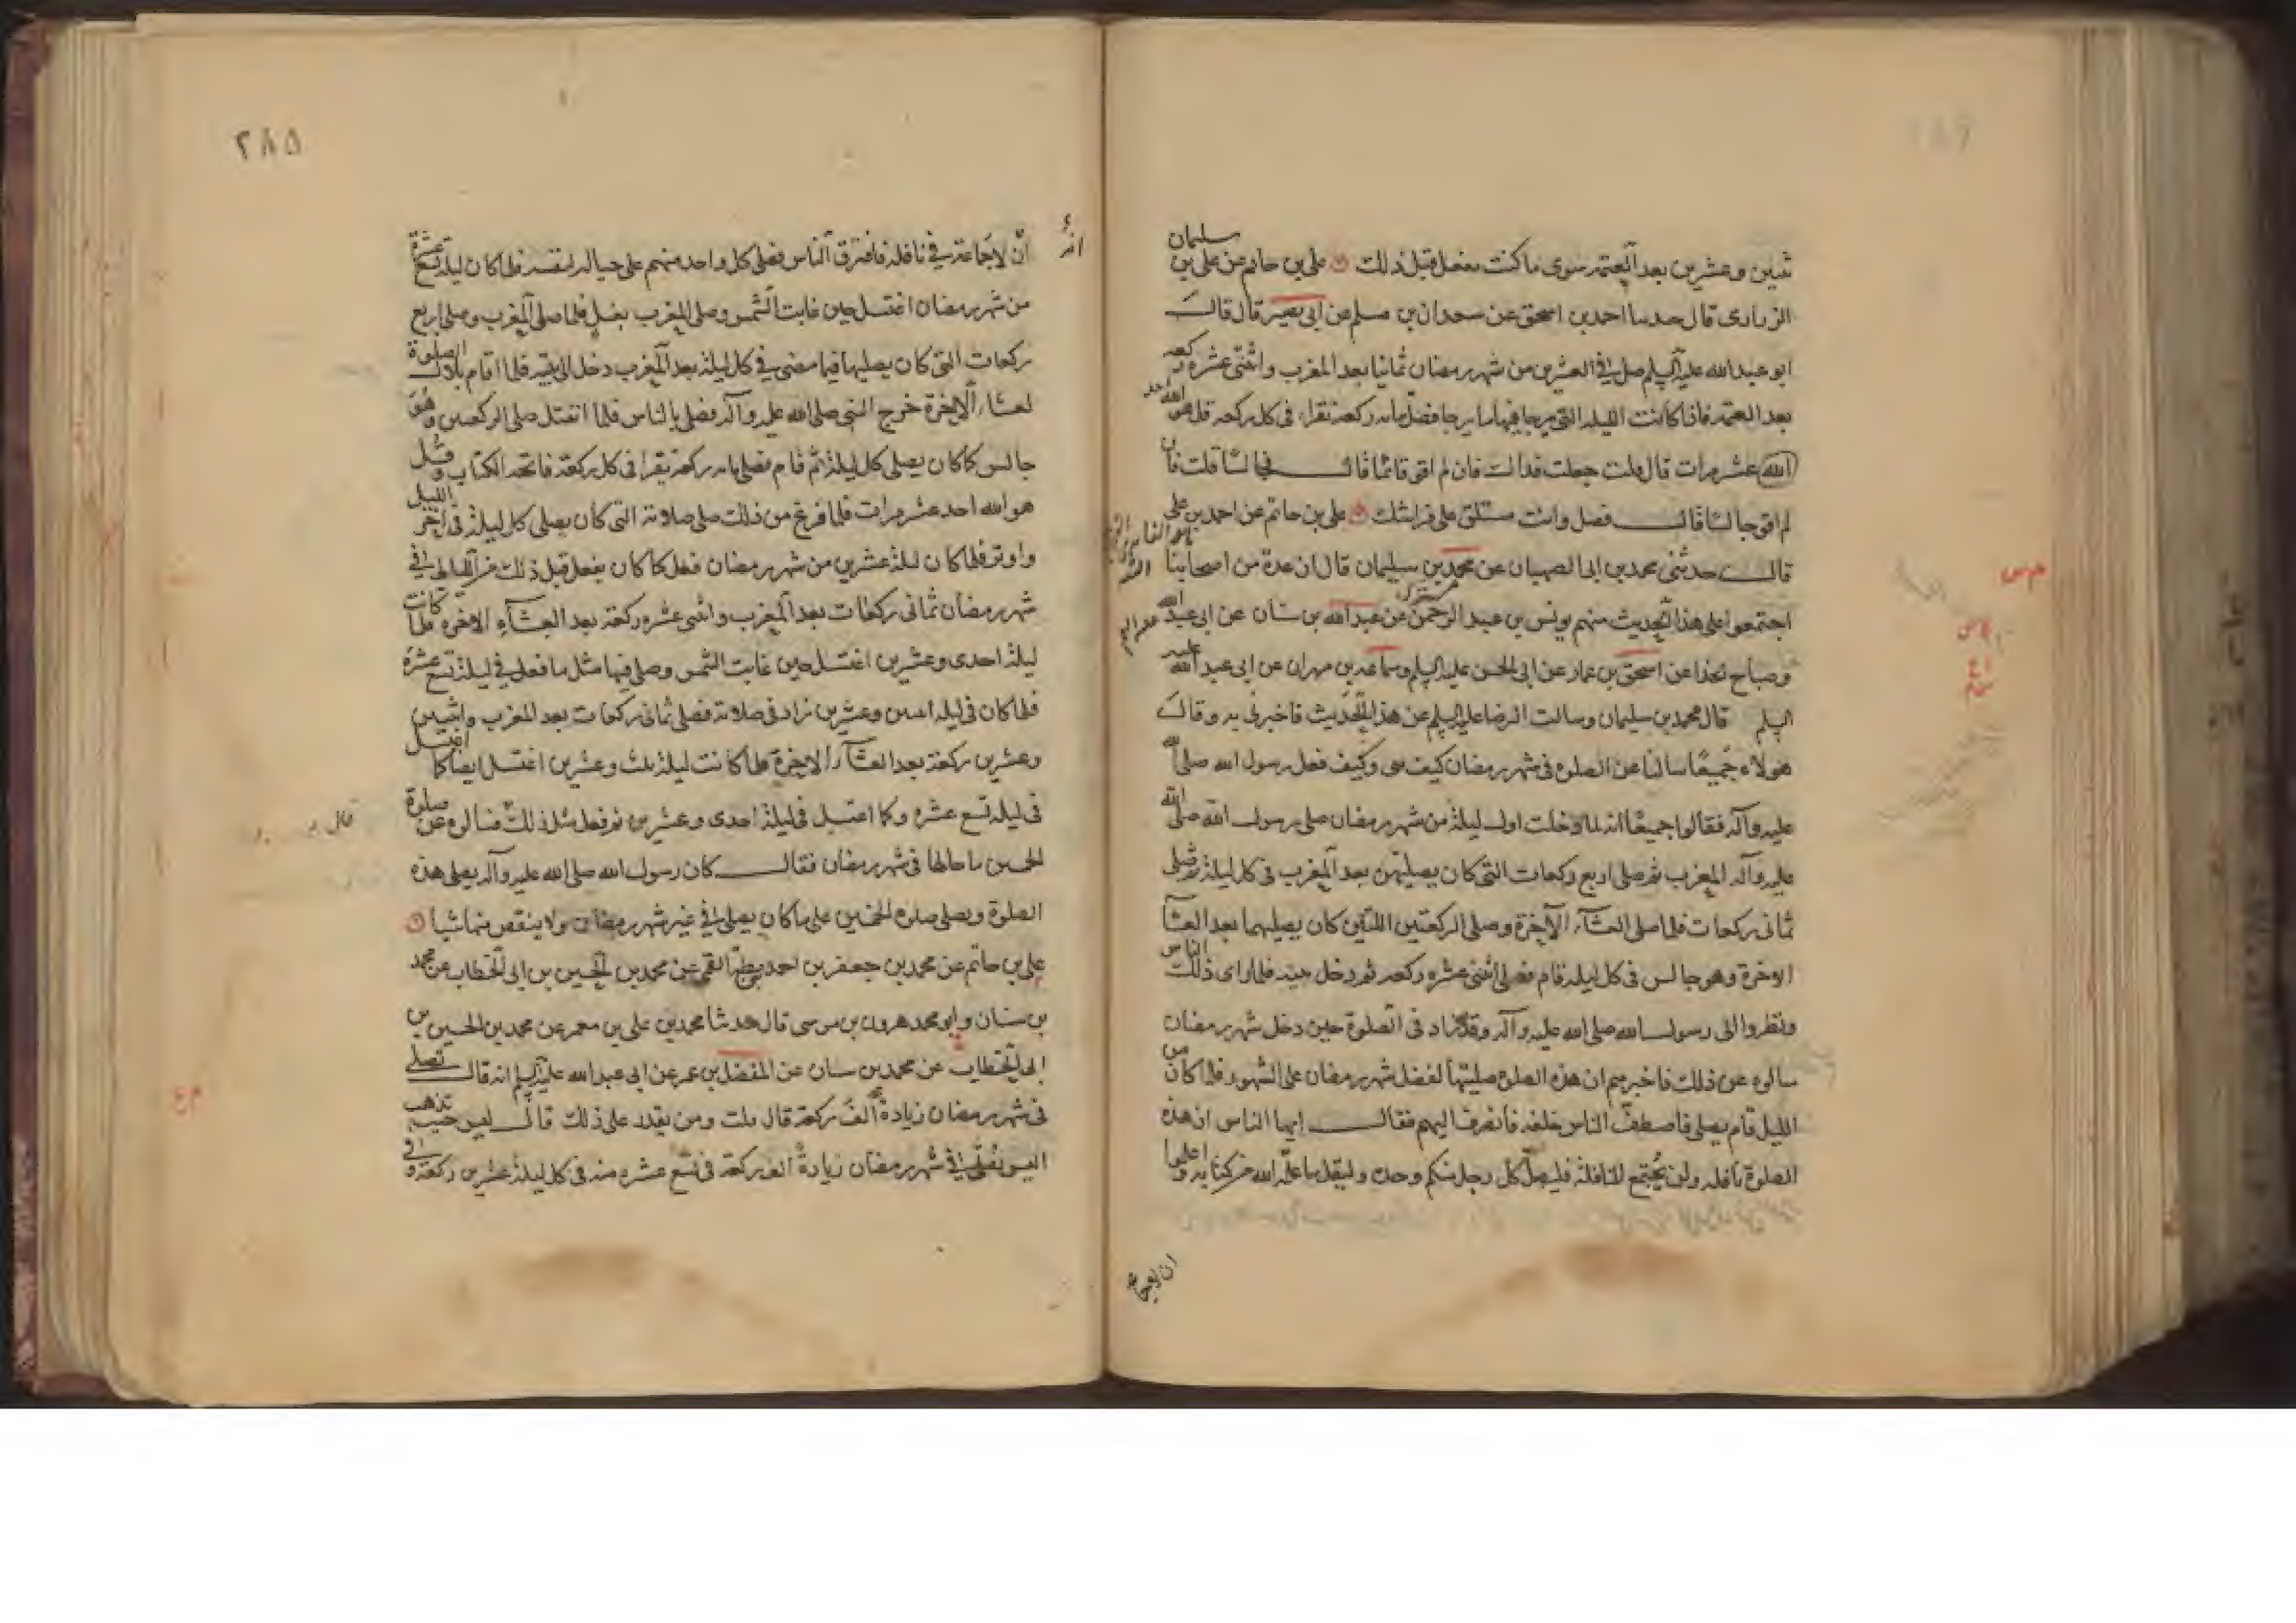 ثنين وعشرين بعد العتمة سوى ما كنت تفعل قبل ذلك علي بن حاتم عن علي بن سليمان
الزراري قال حدثنا احمد بن اسحق عن سعدان بن مسلم عن ابي بصير قال قال
ابو عبد الله عليه السلم صل في العشرين من شهر رمضان ثمانيا بعد المغرب واثنتى عشرة ركعة
بعد العتمة فاذا كانت الليلة التى يرجا فيها ما يرجا فصل مائة ركعة تقراء في كل ركعة قل هو الله احد
عشر مرات قال قلت جعلت فداك فان لم اقو قائما قال فجالسا قلت فان
لم اقو جالسا قال فصل وانت مستلق على فراشك علي بن حاتم عن احمد بن علي
قال حدثنى محمد بن ابى الصهبان عن محمد بن سليمان قال ان عدة من اصحابنا
اجتمعوا على هذا الحديث منهم يونس بن عبد الرحمن عن عبد الله بن سنان عن ابى عبد الله
وصباح الحذا عن اسحق بن عمار عن ابى الحسن عليه السلم وسماعة بن مهران عن ابى عبد الله عليه
السلم قال محمد بن سليمان وسالت الرضا عليه السلم عن هذا الحديث فاخبرنى به وقال
هولاء جميعا سالنا عن الصلوة فى شهر رمضان كيف هى وكيف فعل رسول الله صلى الله
عليه وآله فقالوا جميعا انه لما دخلت اول ليلة من شهر رمضان صلى رسول الله صلى الله
عليه وآله المغرب ثم صلى اربع ركعات التى كان يصليهن بعد المغرب فى كل ليلة ثم صلى
ثمانى ركعات فلما صلى العشآء الآخرة وصلى الركعتين اللتين كان يصليهما بعد العشآ
الاخرة وهو جالس فى كل ليلة قام فصلى اثنتى عشرة ركعة ثم دخل بيته فلما راى ذلك الناس
ونظروا الى رسول الله صلى الله عليه وآله وقد زاد فى الصلوة حين دخل شهر رمضان
سالوه عن ذلك فاخبرهم ان هذه الصلوة صليتها لفضل شهر رمضان على الشهور فلما كان من
الليل قام يصلى فاصطف الناس خلفه فانصرف اليهم فقال ايها الناس ان هذه
الصلوة نافلة ولن يجتمع للنافلة فليصل كل رجل منكم وحده وليقل ما علمه الله من كتابه واعلموا
ان لا جماعة
٢٨٥
ان لا جماعة في نافلة فافترق الناس فصلى كل واحد منهم على حياله لنفسه فلما كان ليلة تسع عشرة
من شهر رمضان اغتسل حين غابت الشمس وصلى المغرب بغسل فلما صلى المغرب وصلى اربع
ركعات التى كان يصليها فيما مضى في كل ليلة بعد المغرب دخل الى بيته فلما اقام بلال الصلوة
لعشاء الآخرة خرج النبى صلى الله عليه وآله فصلى بالناس فلما انفتل صلى الركعتين وهو
جالس كما كان يصلى كل ليلة ثم قام فصلى مائة ركعة يقرا فى كل ركعة فاتحة الكتاب وقل
هو الله احد عشر مرات فلما فرغ من ذلك صلى صلاته التى كان يصلى كل ليلة فى آخر الليل
واوتر فلما كان ليلة عشرين من شهر رمضان فعل كما كان يفعل قبل ذلك من الليالى في
شهر رمضان ثمانى ركعات بعد المغرب واثنتى عشرة ركعة بعد العشآء الاخرة فلما كانت
ليلة احدى وعشرين اغتسل حين غابت الشمس وصلى فيها مثل ما فعل في ليلة تسع عشرة
فلما كان فى ليلة اثنين وعشرين زاد فى صلاته فصلى ثمانى ركعات بعد المغرب واثنين
وعشرين ركعة بعد العشآء الاخرة فلما كانت ليلة ثلث وعشرين اغتسل ايضا كما اغتسل
فى ليلة تسع عشرة وكما اغتسل فى ليلة احدى وعشرين ثم فعل مثل ذلك فسالوه عن صلوة
الخمسين ما حالها فى شهر رمضان فقال كان رسول الله صلى الله عليه وآله يصلى هذه
الصلوة ويصلى صلوة الخمسين على ما كان يصلى في غير شهر رمضان ولا ينقص منها شيا
علي بن حاتم عن محمد بن جعفر بن احمد بن بطة القمى عن محمد بن الحسين بن ابى الخطاب عن محمد
بن سنان وابو محمد هرون بن موسى قال حدثنا محمد بن علي بن معمر عن محمد بن الحسين بن
ابى الخطاب عن محمد بن سنان عن المفضل بن عمر عن ابى عبد الله عليه السلم انه قال تصلى
فى شهر رمضان زيادة الف ركعة قال قلت ومن يقدر على ذلك قال ليس حيث تذهب
اليس تصلى في شهر رمضان زيادة الف ركعة فى تسع عشرة منه فى كل ليلة عشرين ركعة وفى